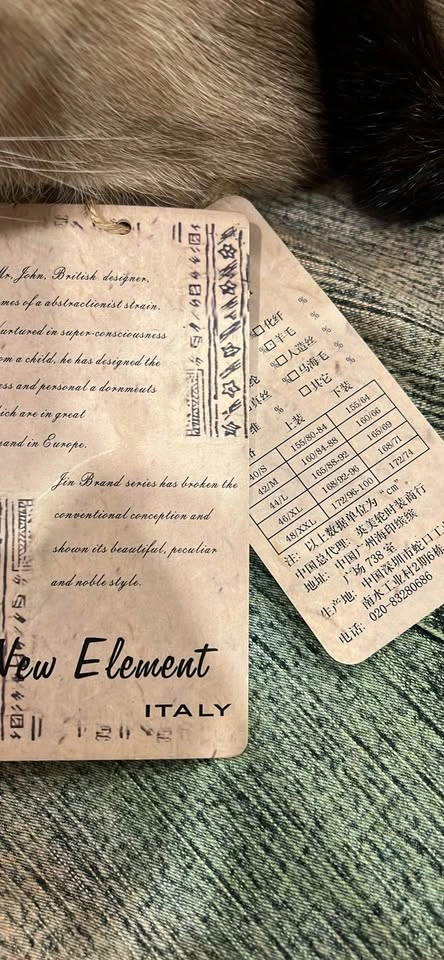 Mr, John, British designer,
mes of a abstractionist strain.
urtured in super-consciousness
om a child, he has designed the
ss and personal a dornments
ich are in great
and in Europe.
Jin Brand series has broken the
conventional conception and
shown its beautiful, peculiar
and noble style.
New Element
ITALY
□化纤 %
%□羊毛 %
%□人造丝 %
%□马海毛 %
纶 □其它
真丝 %
维 %
上装 下装
40/S 155/80-84 155/64
42/M 160/84-88 160/66
44/L 165/88-92 165/69
46/XL 168/92-96 168/71
48/XXL 172/96-100 172/74
注: 以上数据单位为“cm”
中国总代理: 英美轮时装商行
地址: 中国广州海印缤缤
广场 738 室
生产地: 中国深圳市蛇口工
南水工业村2期6栋
电话: 020-83280686